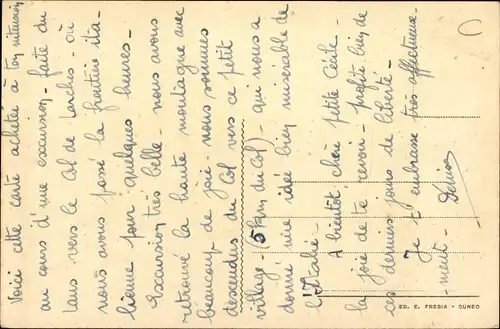 Voici cette carte achetée à ton intention
au cours d'une excursion - faite du
Laus vers le Col de Larchis - où
nous avons passé la frontière ita-
lienne pour quelques heures -
Excursion très belle - nous avons
retrouvé la haute montagne avec
beaucoup de joie - nous sommes
descendus du Col vers ce petit
village - (5 km du Col) - qui nous a
donné une idée bien misérable de
l'Italie -
A bientôt chère petite Cécile -
la joie de te revoir - profite bien de
ces derniers jours de liberté -
Je t'embrasse très affectueuse-
ment -
Denise
ED. E. FRESIA - CUNEO